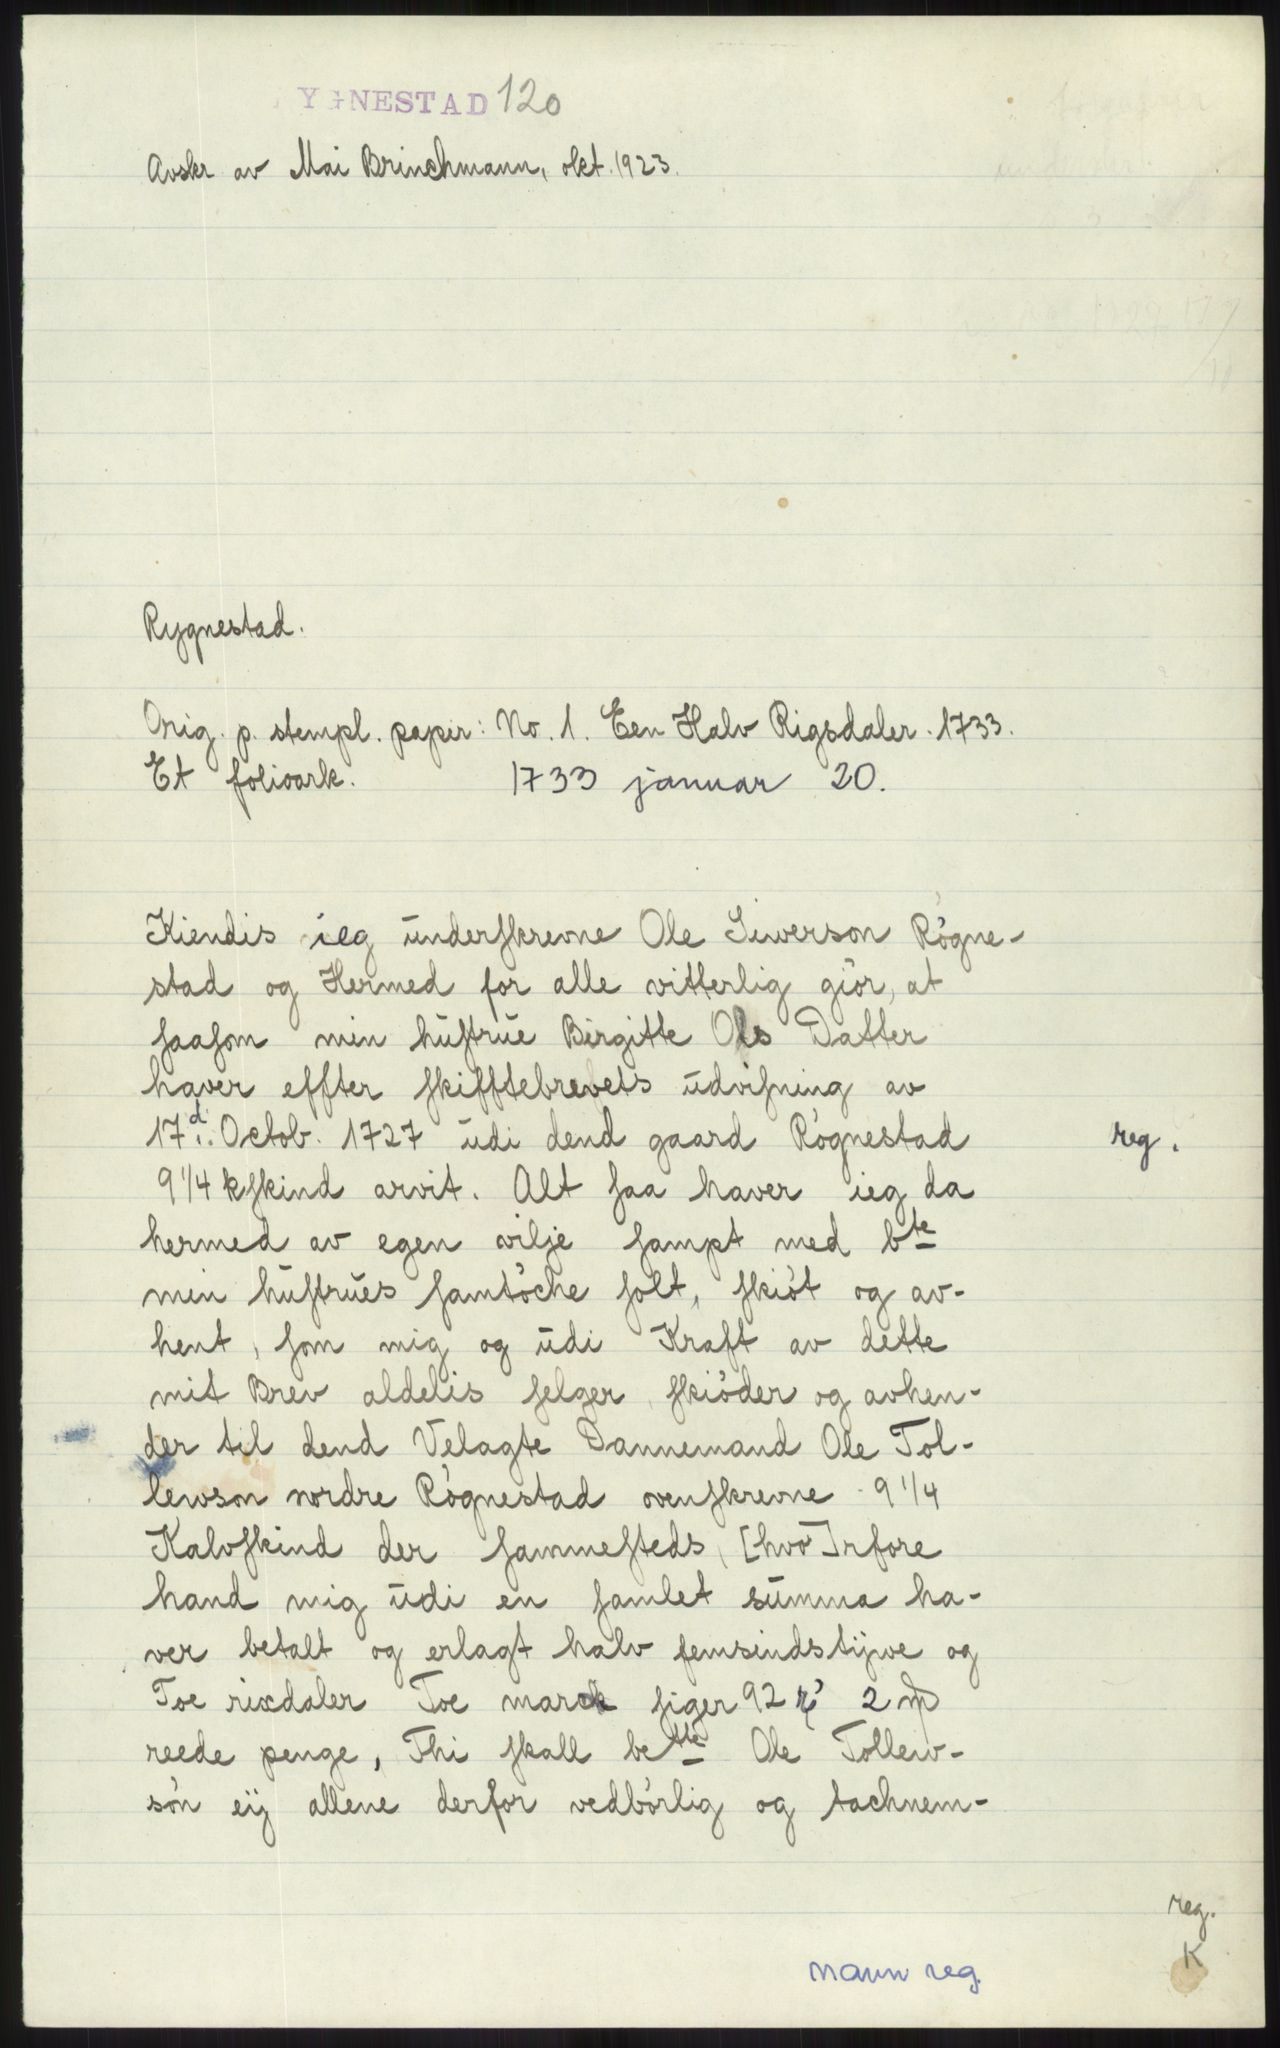 YGNESTAD 120
Avskr av Mai Brinchmann, okt. 1923.
Rygnestad.
Orig. p. stempl. papir: No. 1. Een Halv Rigsdaler. 1733.
Et folioark. 1733 januar 20.
Kiendis ieg ūnderſkrevne Ole Siwerson Røgne-
stad og Hermed for alle vitterlig giör, at
ſaaſom min hūſtrūe Birgitte Ols Datter
haver effter ſkifftebrevets ūdviſning av
17d. Octob. 1727 ūdi dend gaard Røgnestad reg.
9 1/4 kſkind arvit. Alt ſaa haver ieg da
hermed av egen vilje ſampt med bte
min hūſtrūes ſamtöche ſolt, ſkiöt og av-
hent, ſom mig og ūdi Kraft av dette
mit Brev aldelis ſelger, ſkiöder og avhen-
der til dend Velagte Dannemand Ole Tol-
lewson nordre Røgnestad ovenſkrevne 9 1/4
Kalvſkind der ſammeſteds, [hvo]rfore
hand mig ūdi en ſamlet sūmma ha-
ver betalt og erlagt halv femsindstijwe og
Toe rixdaler Toe marck ſiger 92 2
reede penge, Thi ſkall betté Ole Tollew-
sön eij allene derfor vedbörlig og tachnem-
reg.
K
navn reg.